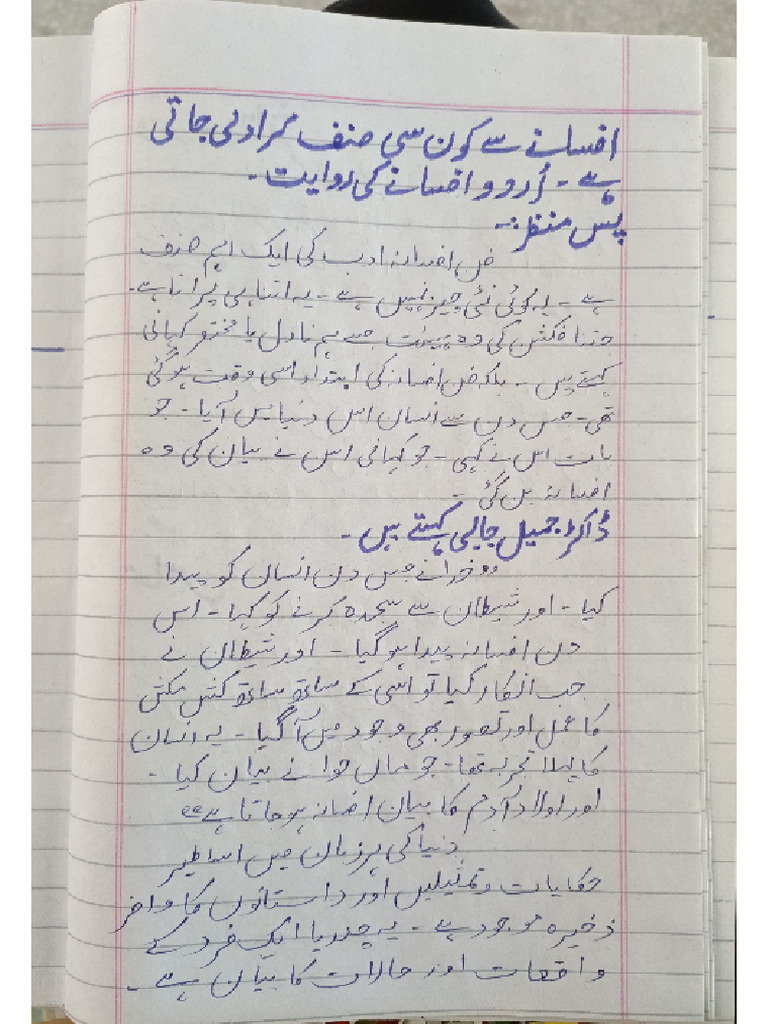 افسانے سے کون سی صنف مراد لی جاتی
ہے ۔ اُردو افسانے کی روایت ۔
پس منظر :۔
فن افسانہ ادب کی ایک اہم صنف
ہے ۔ یہ کوئی نئی چیز نہیں ہے ۔ یہ اتنا ہی پرانا ہے ۔
جتنا فکشن کی وہ ہیئت جسے ہم ناول یا مختصر کہانی
کہتے ہیں ۔ بلکہ فن افسانہ کی ابتداء اسی وقت ہو گئی
تھی ۔ جس دن سے انسان اس دنیا میں آیا ۔ جو
بات اس نے کہی ۔ جو کہانی اس نے بیان کی وہ
افسانہ بن گئی ۔
ڈاکٹر جمیل جالبی کہتے ہیں ۔
”خدا نے جس دن انسان کو پیدا
کیا ۔ اور شیطان سے سجدہ کرنے کو کہا ۔ اس
دن افسانہ پیدا ہو گیا ۔ اور شیطان نے
جب انکار کیا تو اسی کے ساتھ ساتھ کش مکش
کا عمل اور تصور بھی وجود میں آ گیا ۔ یہ انسان
کا پہلا تجربہ تھا ۔ جو اماں حوا نے بیان کیا ۔
اور اولاد آدم کا بیان افسانہ ہو جاتا ہے“
دنیا کی ہر زبان میں اساطیر
حکایات و تمثیلیں اور داستانوں کا وافر
ذخیرہ موجود ہے ۔ یہ چند یا ایک فرد کے
واقعات اور حالات کا بیان ہے ۔